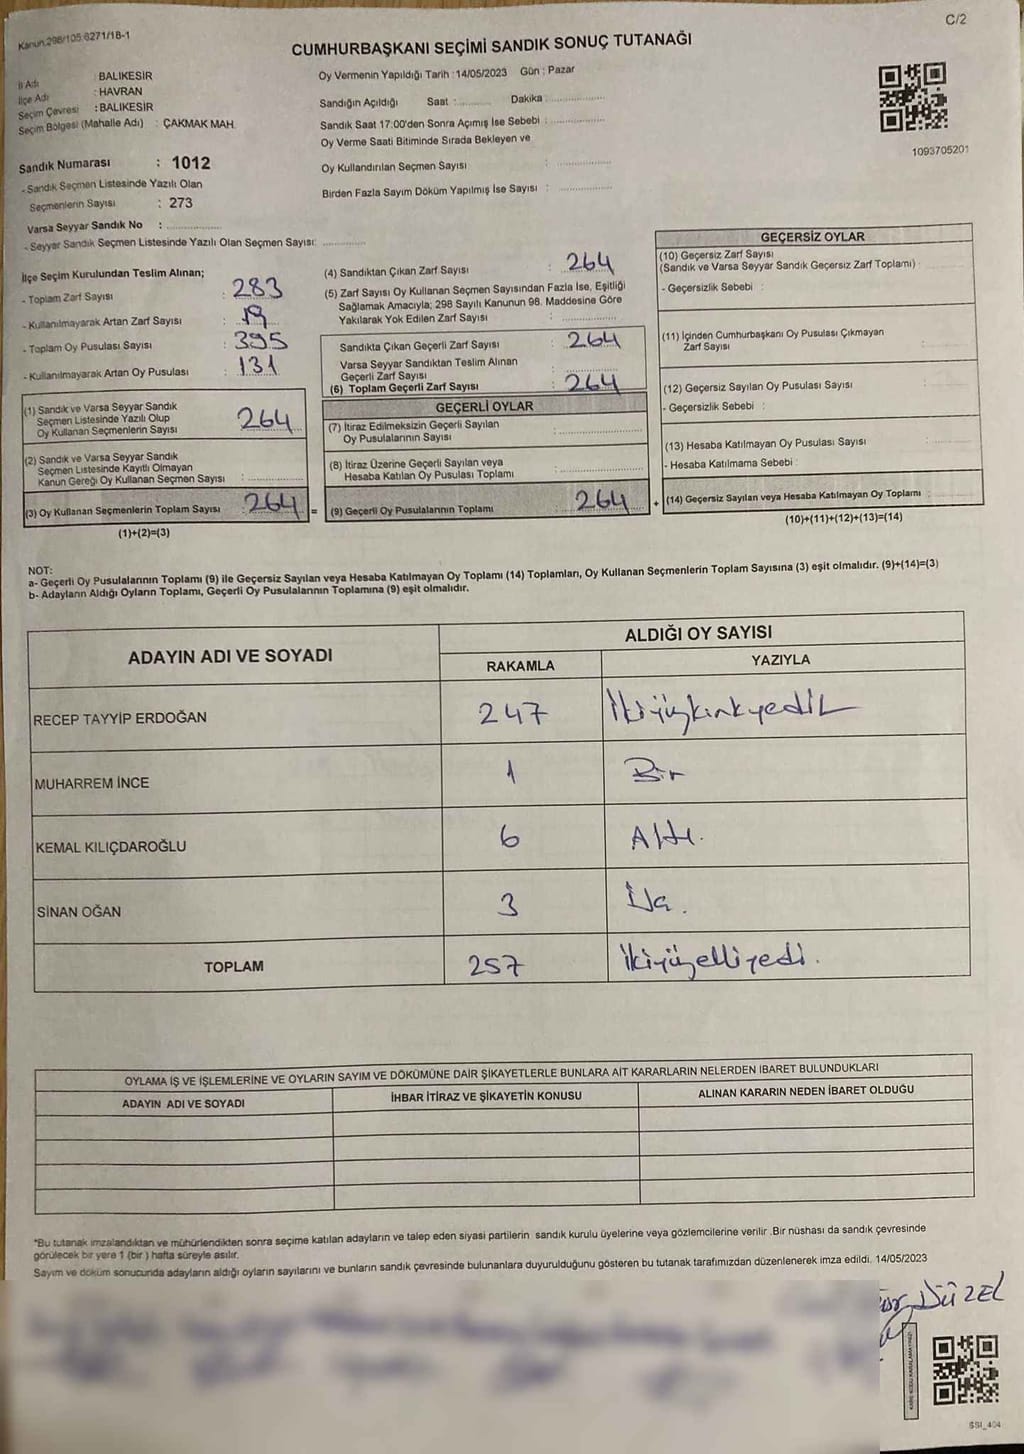 Kanun.298/105.6271/18-1
C/2
CUMHURBAŞKANI SEÇİMİ SANDIK SONUÇ TUTANAĞI
İl Adı : BALIKESİR
İlçe Adı : HAVRAN
Seçim Çevresi : BALIKESİR
Seçim Bölgesi (Mahalle Adı) : ÇAKMAK MAH.
Oy Vermenin Yapıldığı Tarih :14/05/2023 Gün : Pazar
Sandığın Açıldığı Saat :........... Dakika :..................
Sandık Saat 17:00'den Sonra Açımış İse Sebebi : ................
Oy Verme Saati Bitiminde Sırada Bekleyen ve
Oy Kullandırılan Seçmen Sayısı : ................
Birden Fazla Sayım Döküm Yapılmış İse Sayısı : ................
1093705201
Sandık Numarası : 1012
- Sandık Seçmen Listesinde Yazılı Olan
Seçmenlerin Sayısı : 273
Varsa Seyyar Sandık No : ................
- Seyyar Sandık Seçmen Listesinde Yazılı Olan Seçmen Sayısı: .............
İlçe Seçim Kurulundan Teslim Alınan;
- Toplam Zarf Sayısı : 283
- Kullanılmayarak Artan Zarf Sayısı : 19
- Toplam Oy Pusulası Sayısı : 395
- Kullanılmayarak Artan Oy Pusulası : 131
(1) Sandık ve Varsa Seyyar Sandık
Seçmen Listesinde Yazılı Olup
Oy Kullanan Seçmenlerin Sayısı 264
(2) Sandık ve Varsa Seyyar Sandık
Seçmen Listesinde Kayıtlı Olmayan
Kanun Gereği Oy Kullanan Seçmen Sayısı :
(3) Oy Kullanan Seçmenlerin Toplam Sayısı : 264 =
(1)+(2)=(3)
(4) Sandıktan Çıkan Zarf Sayısı : 264
(5) Zarf Sayısı Oy Kullanan Seçmen Sayısından Fazla İse, Eşitliği
Sağlamak Amacıyla; 298 Sayılı Kanunun 98. Maddesine Göre
Yakılarak Yok Edilen Zarf Sayısı :
Sandıkta Çıkan Geçerli Zarf Sayısı : 264
Varsa Seyyar Sandıktan Teslim Alınan
Geçerli Zarf Sayısı :
(6) Toplam Geçerli Zarf Sayısı : 264
GEÇERLİ OYLAR
(7) İtiraz Edilmeksizin Geçerli Sayılan
Oy Pusulalarının Sayısı :
(8) İtiraz Üzerine Geçerli Sayılan veya
Hesaba Katılan Oy Pusulası Toplamı :
(9) Geçerli Oy Pusulalarının Toplamı : 264 +
GEÇERSİZ OYLAR
(10) Geçersiz Zarf Sayısı
(Sandık ve Varsa Seyyar Sandık Geçersiz Zarf Toplamı) :
- Geçersizlik Sebebi :
(11) İçinden Cumhurbaşkanı Oy Pusulası Çıkmayan
Zarf Sayısı :
(12) Geçersiz Sayılan Oy Pusulası Sayısı :
- Geçersizlik Sebebi :
(13) Hesaba Katılmayan Oy Pusulası Sayısı :
- Hesaba Katılmama Sebebi :
(14) Geçersiz Sayılan veya Hesaba Katılmayan Oy Toplamı :
(10)+(11)+(12)+(13)=(14)
NOT:
a- Geçerli Oy Pusulalarının Toplamı (9) ile Geçersiz Sayılan veya Hesaba Katılmayan Oy Toplamı (14) Toplamları, Oy Kullanan Seçmenlerin Toplam Sayısına (3) eşit olmalıdır. (9)+(14)=(3)
b- Adayların Aldığı Oyların Toplamı, Geçerli Oy Pusulalarının Toplamına (9) eşit olmalıdır.
ADAYIN ADI VE SOYADI
ALDIĞI OY SAYISI
RAKAMLA YAZIYLA
RECEP TAYYİP ERDOĞAN 247 İkiyüzkırkyedi
MUHARREM İNCE 1 Bir
KEMAL KILIÇDAROĞLU 6 Altı.
SİNAN OĞAN 3 Üç.
TOPLAM 257 İkiyüzelliyedi.
OYLAMA İŞ VE İŞLEMLERİNE VE OYLARIN SAYIM VE DÖKÜMÜNE DAİR ŞİKAYETLERLE BUNLARA AİT KARARLARIN NELERDEN İBARET BULUNDUKLARI
ADAYIN ADI VE SOYADI İHBAR İTİRAZ VE ŞİKAYETİN KONUSU ALINAN KARARIN NEDEN İBARET OLDUĞU
*Bu tutanak imzalandıktan ve mühürlendikten sonra seçime katılan adayların ve talep eden siyasi partilerin sandık kurulu üyelerine veya gözlemcilerine verilir .Bir nüshası da sandık çevresinde
görülecek bir yere 1 (bir ) hafta süreyle asılır.
Sayım ve döküm sonucunda adayların aldığı oyların sayılarını ve bunların sandık çevresinde bulunanlara duyurulduğunu gösteren bu tutanak tarafımızdan düzenlenerek imza edildi. 14/05/2023
DÜZEL
SSI_404